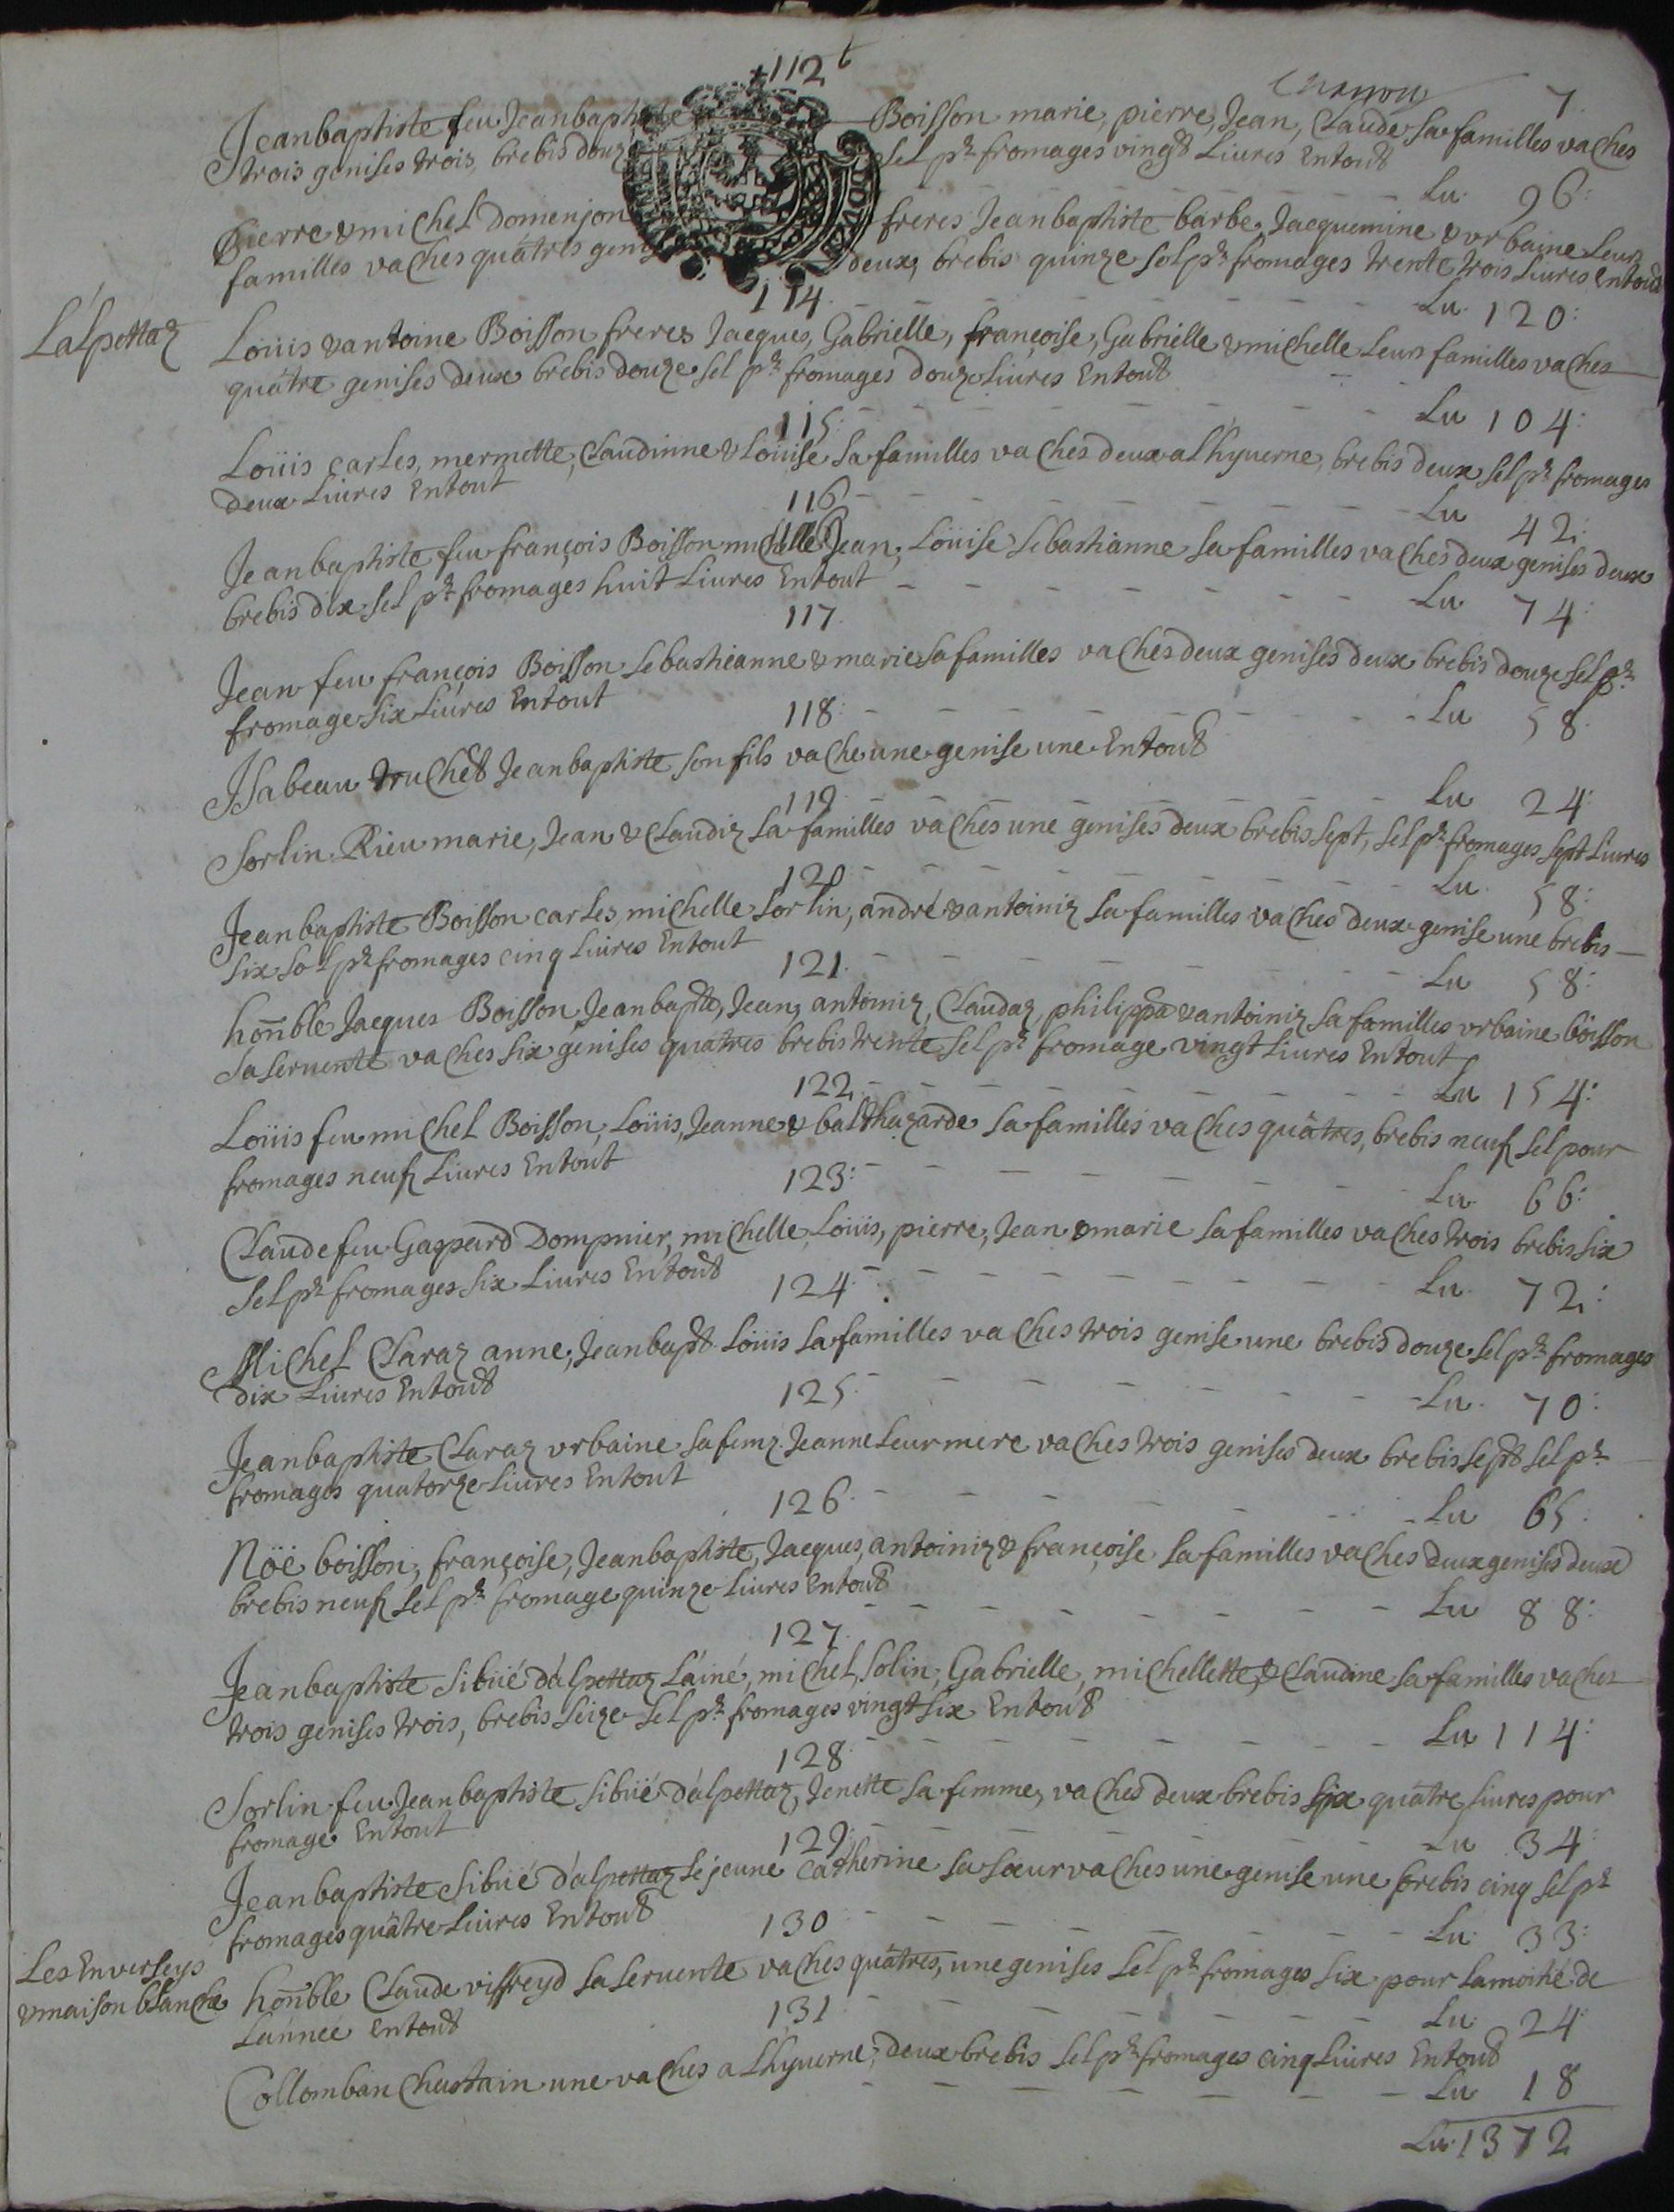 112
7
Jeanbaptiste feu Jeanbaptiste Boisson marie, pierre, Jean, Claude sa familles vaches
trois genises trois, brebis douze sel pr fromages vingt Liures Entout
Lu 96:
pierre & michel domenjon freres Jeanbaptiste barbe, Jacquemine & vrbaine Leurs
familles vaches quatres genises deux, brebis quinze sel pr fromages trente trois Liures Entout
114
Lu 120:
Lalpettaz
Loüis & antoine Boisson freres Jacques, Gabrielle, françoise, Gabrielle & michelle Leurs familles vaches
quatre genises deux brebis douze sel pr fromages douze Liures Entout
115:
Lu 104:
Loüis carles, mermette, Claudinne & Loüise sa familles vaches deux a Lhyuerne, brebis deux sel pr fromages
deux Liures Entout
116
Lu 42:
Jeanbaptiste feu françois Boisson michelle Jean, Loüise sebastianne sa familles vaches deux genises deux
brebis dix sel pr fromages huit Liures Entout
Lu 74:
117.
Jean feu françois Boisson sebastieanne & marie sa familles vaches deux genises deux brebis douze sel pr
fromage six Liures Entout
118:
Lu 58.
Jsabeau truchet Jeanbaptiste son fils vache une genise une Entout
119
Lu 24:
Sorlin Rieu marie, Jean & Claudiz sa familles vaches une genises deux brebis sept, sel pr fromages sept Liures
120
Lu 58:
Jeanbaptiste Boisson carles, michelle sorlin, andré & antoiniz sa familles vaches deux genise une brebis
six sel pr fromages cinq Liures Entout
121.
Lu 58:
honnble Jacques Boisson, Jeanbaptte, Jean, antoiniz, Claudaz, philippa & antoiniz sa familles vrbaine boisson
sa seruente vaches six genises quatres brebis trente sel pr fromage vingt Liures Entout
122
Lu 154:
Loüis feu michel Boisson, Loüis, Jeanne & balthazarde sa familles vaches quatres, brebis neuf sel pour
fromages neuf Liures Entout
123:
Lu 66:
Claude feu Gaspard Dompnier, michelle Loüis, pierre, Jean & marie sa familles vaches trois brebis six
sel pr fromages six Liures Entout
124:
Lu 72:
Michel Claraz anne, Jeanbapt Loüis sa familles vaches trois genise une brebis douze sel pr fromages
dix Liures Entout
125.
Lu 70:
Jeanbaptiste Claraz vrbaine sa femz Jeanne Leur mere vaches trois genises deux brebis sept sel pr
fromages quatorze Liures Entout
126.
Lu 65:
Nöé boisson, françoise, Jeanbaptiste, Jacques, antoiniz & françoise sa familles vaches deux genises deux
brebis neuf sel pr fromage quinze Liures Entout
Lu 88:
127.
Jeanbaptiste sibüé dalpettaz Lainé, michel, solin, Gabrielle, michellette, & Claudine sa familles vaches
trois genises trois, brebis seize sel pr fromages vingt six Entout
Lu 114:
128:
Sorlin feu Jeanbaptiste sibüé dalpettaz, Jenette sa femme, vaches deux brebis six quatre Liures pour
fromage Entout
129:
Lu 34:
Jeanbaptiste sibüé dalpettaz Le jeune catherine sa sœur vaches une genise une brebis cinq sel pr
fromages quatre Liures Entout
130
Lu 33:
Les Enverseys
& maison blanche
honnble Claude viffreyd sa seruente vaches quatres, une genises sel pr fromages six pour Lamoitié de
Lannee Entout
131.
Lu 24:
Collomban Chustain une vaches a Lhyuerne, deux brebis sel pr fromages cinq Liures Entout
Lu 18
Lu 1372